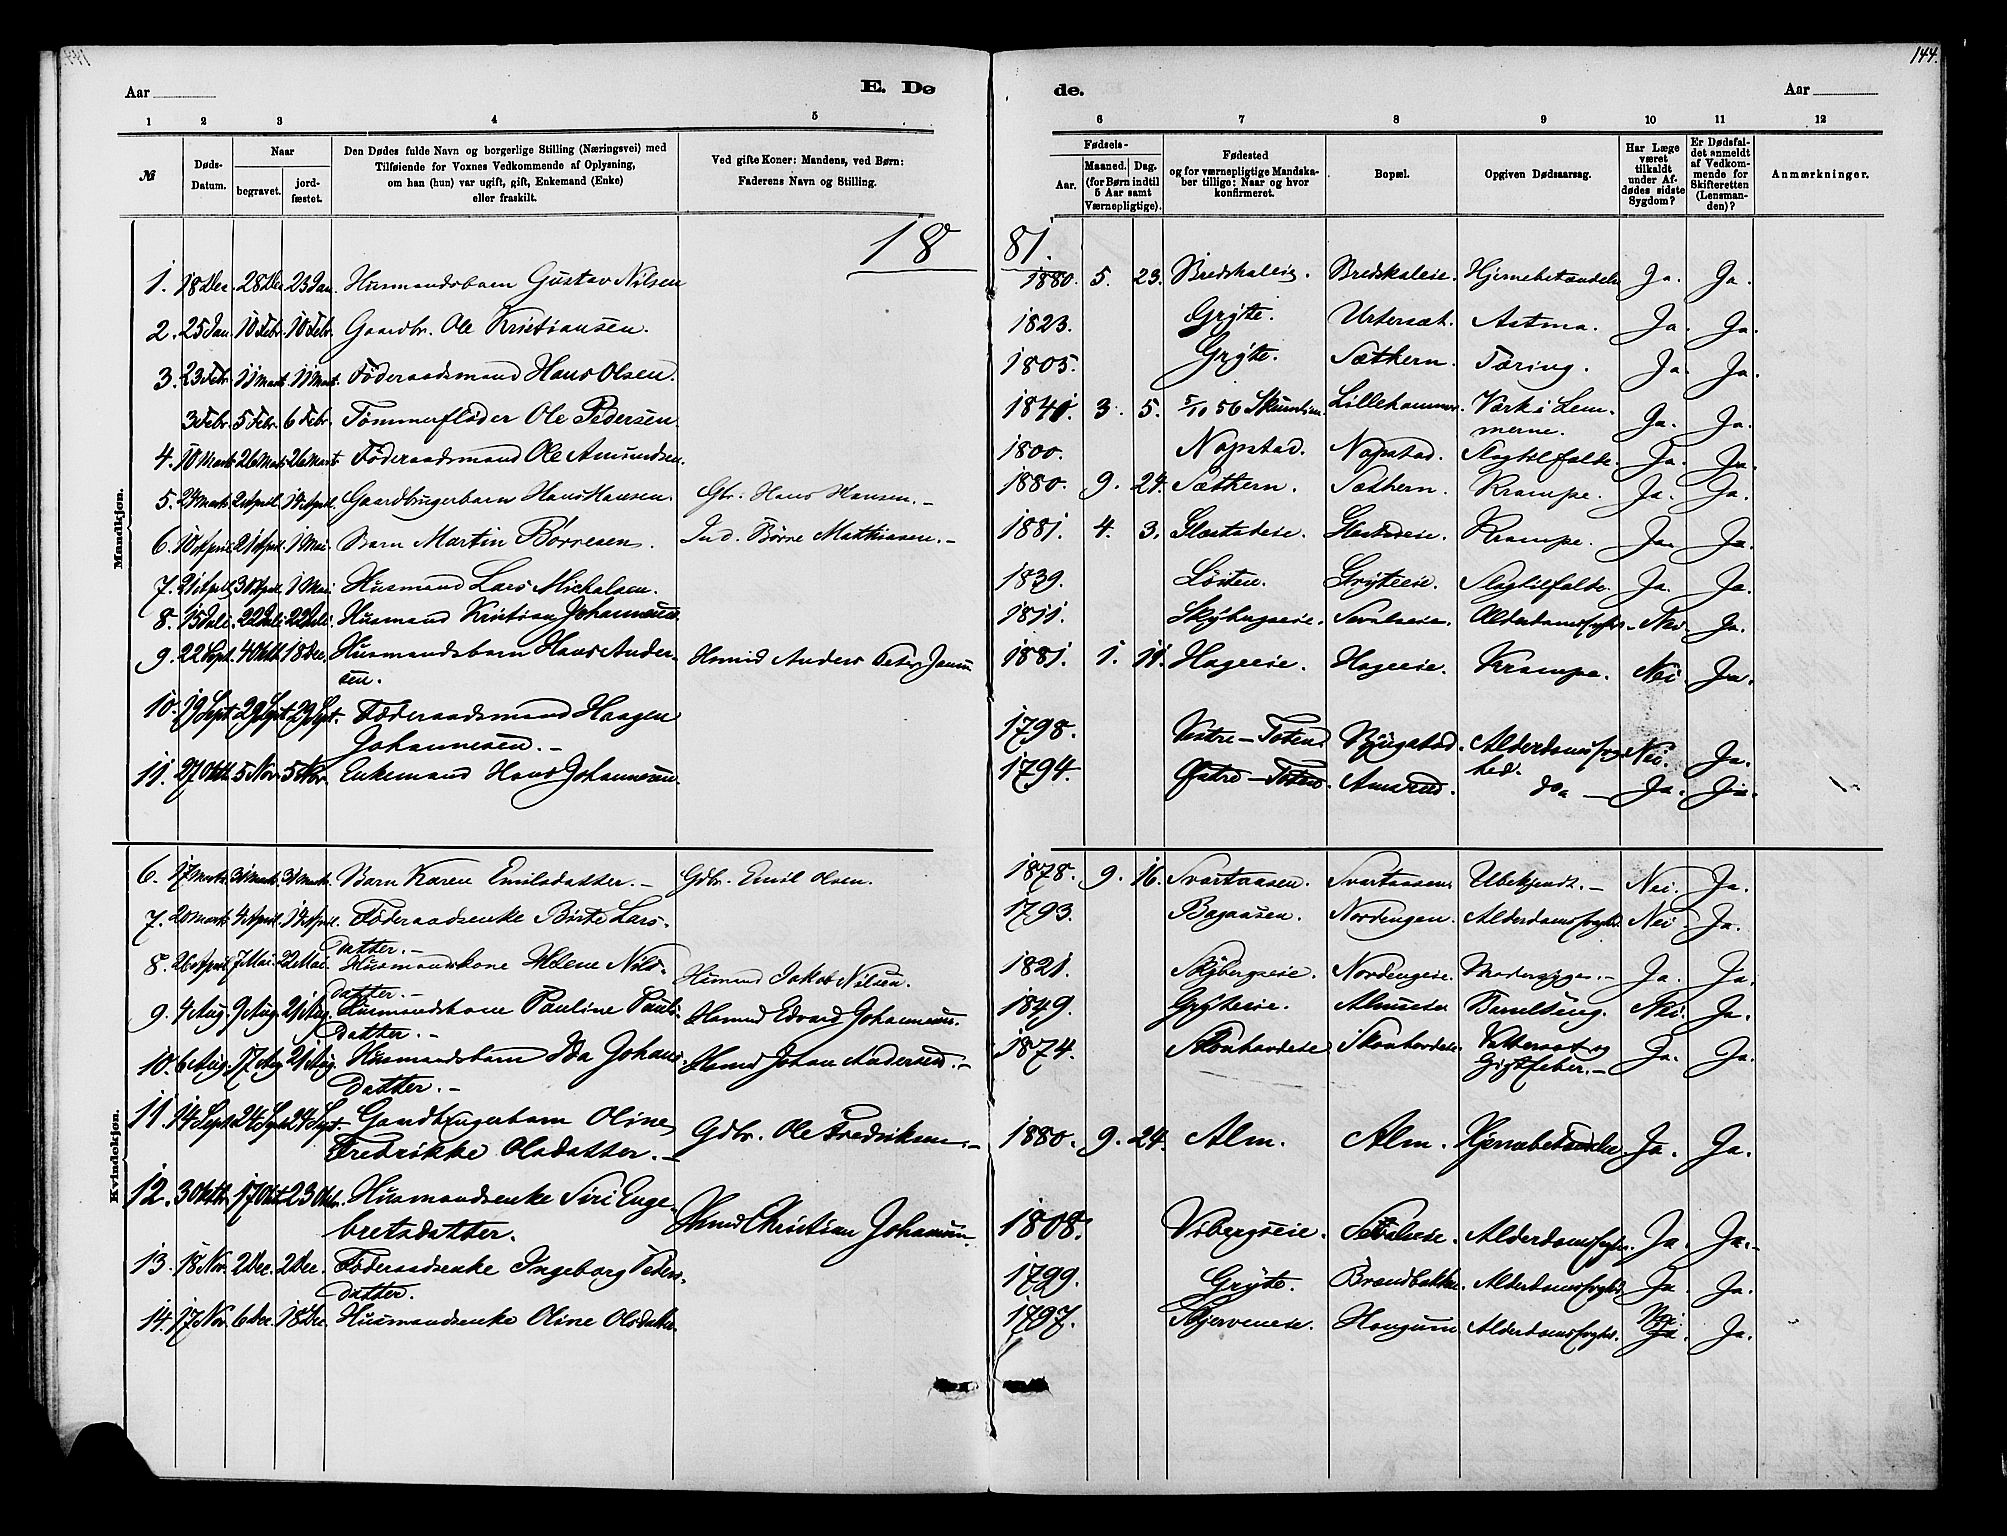 144.
Aar
E. Dø de.
Aar
1 2 3 4 5 6 7 8 9 10 11 12
№
Døds-Datum.
Naar
begravet.
jord-fæstet.
Den Dødes fulde Navn og borgerlige Stilling (Næringsvei) med
Tilføiende for Voxnes Vedkommende af Oplysning,
om han (hun) var ugift, gift, Enkemand (Enke)
eller fraskilt.
Ved gifte Koner: Mandens, ved Børn:
Faderens Navn og Stilling.
Fødsels-
Aar.
Maaned. Dag.
(for Børn indtil
5 Aar samt
Værnepligtige).
Fødested
og for værnepligtige Mandska-
ber tillige: Naar og hvor
konfirmeret.
Bopæl.
Opgiven Dødsaarsag.
Har Læge
været
tilkaldt
under Af-
dødes sidste
Sygdom?
Er Dødsfal-
det anmeldt
af Vedkom-
mende for
Skifteretten
(Lensman-
den)?
Anmærkninger.
1881.
Mandkjøn.
1. 18 Dec. 28 Dec. 23 Jan. Husmandsbarn Gustav Nilsen 1880. 5. 23. Bredskaleie. Bredskaleie. Hjernebetændelse Ja. Ja.
2. 25 Jan. 10 Febr. 10 Febr. Gaardbr. Ole Kristiansen. 1823. Grÿte. Astma. Ja. Ja.
3. 23 Febr. 11 Marts. 11 Mart. Föderaadsmand Hans Olsen. 1805. Grÿte. Sæthern. Tæring. Ja. Ja.
3 Febr. 5 Febr. 6 Febr. Tömmerflöder Ole Pedersen. 1841. 3. 5. 5/10 56 Lillehammer. Værk i Lem-
merne. Ja. Ja.
4. 10 Marts 26 Marts 26 Marts Föderaadsmand Ole Amundsen. 1800. Nopstad. Nopstad. Slagtilfælde. Ja. Ja.
5. 24 Marts. 2 April. 14 April. Gaardbrugerbarn Hans Hansen. Gbr. Hans Hansen. – 1880. 9. 24. Sæthern. Sæthern. Krampe. Ja. Ja.
6. 10 April 21 April 1 Mai. Barn Martin Börresen. Ind. Börre Mathiasen. – 1881. 4. 3. Glæstadeie. Krampe. Ja. Ja.
7. 21 April. 30 April. 1 Mai. Husmand Lars Michalsen. 1839. Löiten. Grÿteeie. Slagtilfælde. Ja. Ja.
8. 15 Juli. 22 Juli. 22 Juli. Husmand Kristian Johannesen 1811. Sevaleeie. Alderdomssvaghed. Nei Ja.
9. 22 Sept. 4 Okth. 18 Dec. Husmandsbarn Hans Ander-
sen. Hsmd Anders Peter Jensen 1881. 1. 11. Hageeie. Hageeie. Krampe. Nei. Ja.
10. 19 Sept. 29 Sept. 29 Sept. Föderaadsmand Haagen
Johannesen. – 1798. Vestre–Toten. Alderdomssvag-
hed. Nei. Ja.
11. 27 Okth. 5 Nov. 5 Nov. Enkemand Hans Johannesen. 1794. Östre–Toten. Amrud. do – Ja. Ja.
Kvindekjøn.
6. 17 Marts. 31 Marts. 31 Marts. Barn Karen Emilsdatter. – Gdbr. Emil Olsen. 1878. 9. 16. Svartaasen. Svartaasen. Ubekjendt. – Nei. Ja.
7. 20 Marts. 4 April. 14 April. Föderaadsenke Birte Lars-
datter. – 1793. Bagaasen. Nordengen. Alderdomssvaghed. Nei. Ja.
8. 26 April. 7 Mai. 22 Mai. Husmandskone Helene Nils-
datter. – Husmd Jakob Nilsen. 1821. Skÿbergseie. Nordengeie. Ja. Ja.
9. 4 Aug. 9 Aug. 21 Aug. Husmandskone Pauline Pauls-
datter. – Hsmnd Edvard Johannesen. 1849. Grÿteeie. Almeeie Barselseng. Nei. Ja.
10. 6 Aug. 17 Aug. 21 Aug. Husmandsbarn Ida Johans-
datter. – Hsmd Johan Andersen. – 1874. Vattersot og
Gigtfeber. – Ja. Ja.
11. 14 Sept. 24 Sept. 24 Sept. Gaardbrugerbarn Oline
Fredrikke Olsdatter. – Gdbr. Ole Fredriksen. – 1880. 9. 24. Alm. Alm. Hjernebetændelse Ja. Ja.
12. 3 Okth. 17 Okt. 23 Oktbr. Husmandsenke Siri Enge-
bretsdatter. Hsmd Christian Johannesen. 1808. Vibergseie. Sevaleeie. Alderdomssvaghed. Ja. Ja.
13. 18 Nov. 2 Dec. 2 Dec. Föderaadsenke Ingeborg Peders-
datter. 1799. Grÿte. Brændbakken. Alderdomssvaghed Ja. Ja.
14. 17 Nov. 6 Dec. 18 Dec. Husmandsenke Oline Olsdatter. 1797. Skjerveneie. Hongum. Alderdomssvaghed. Nei. Ja. Ja.